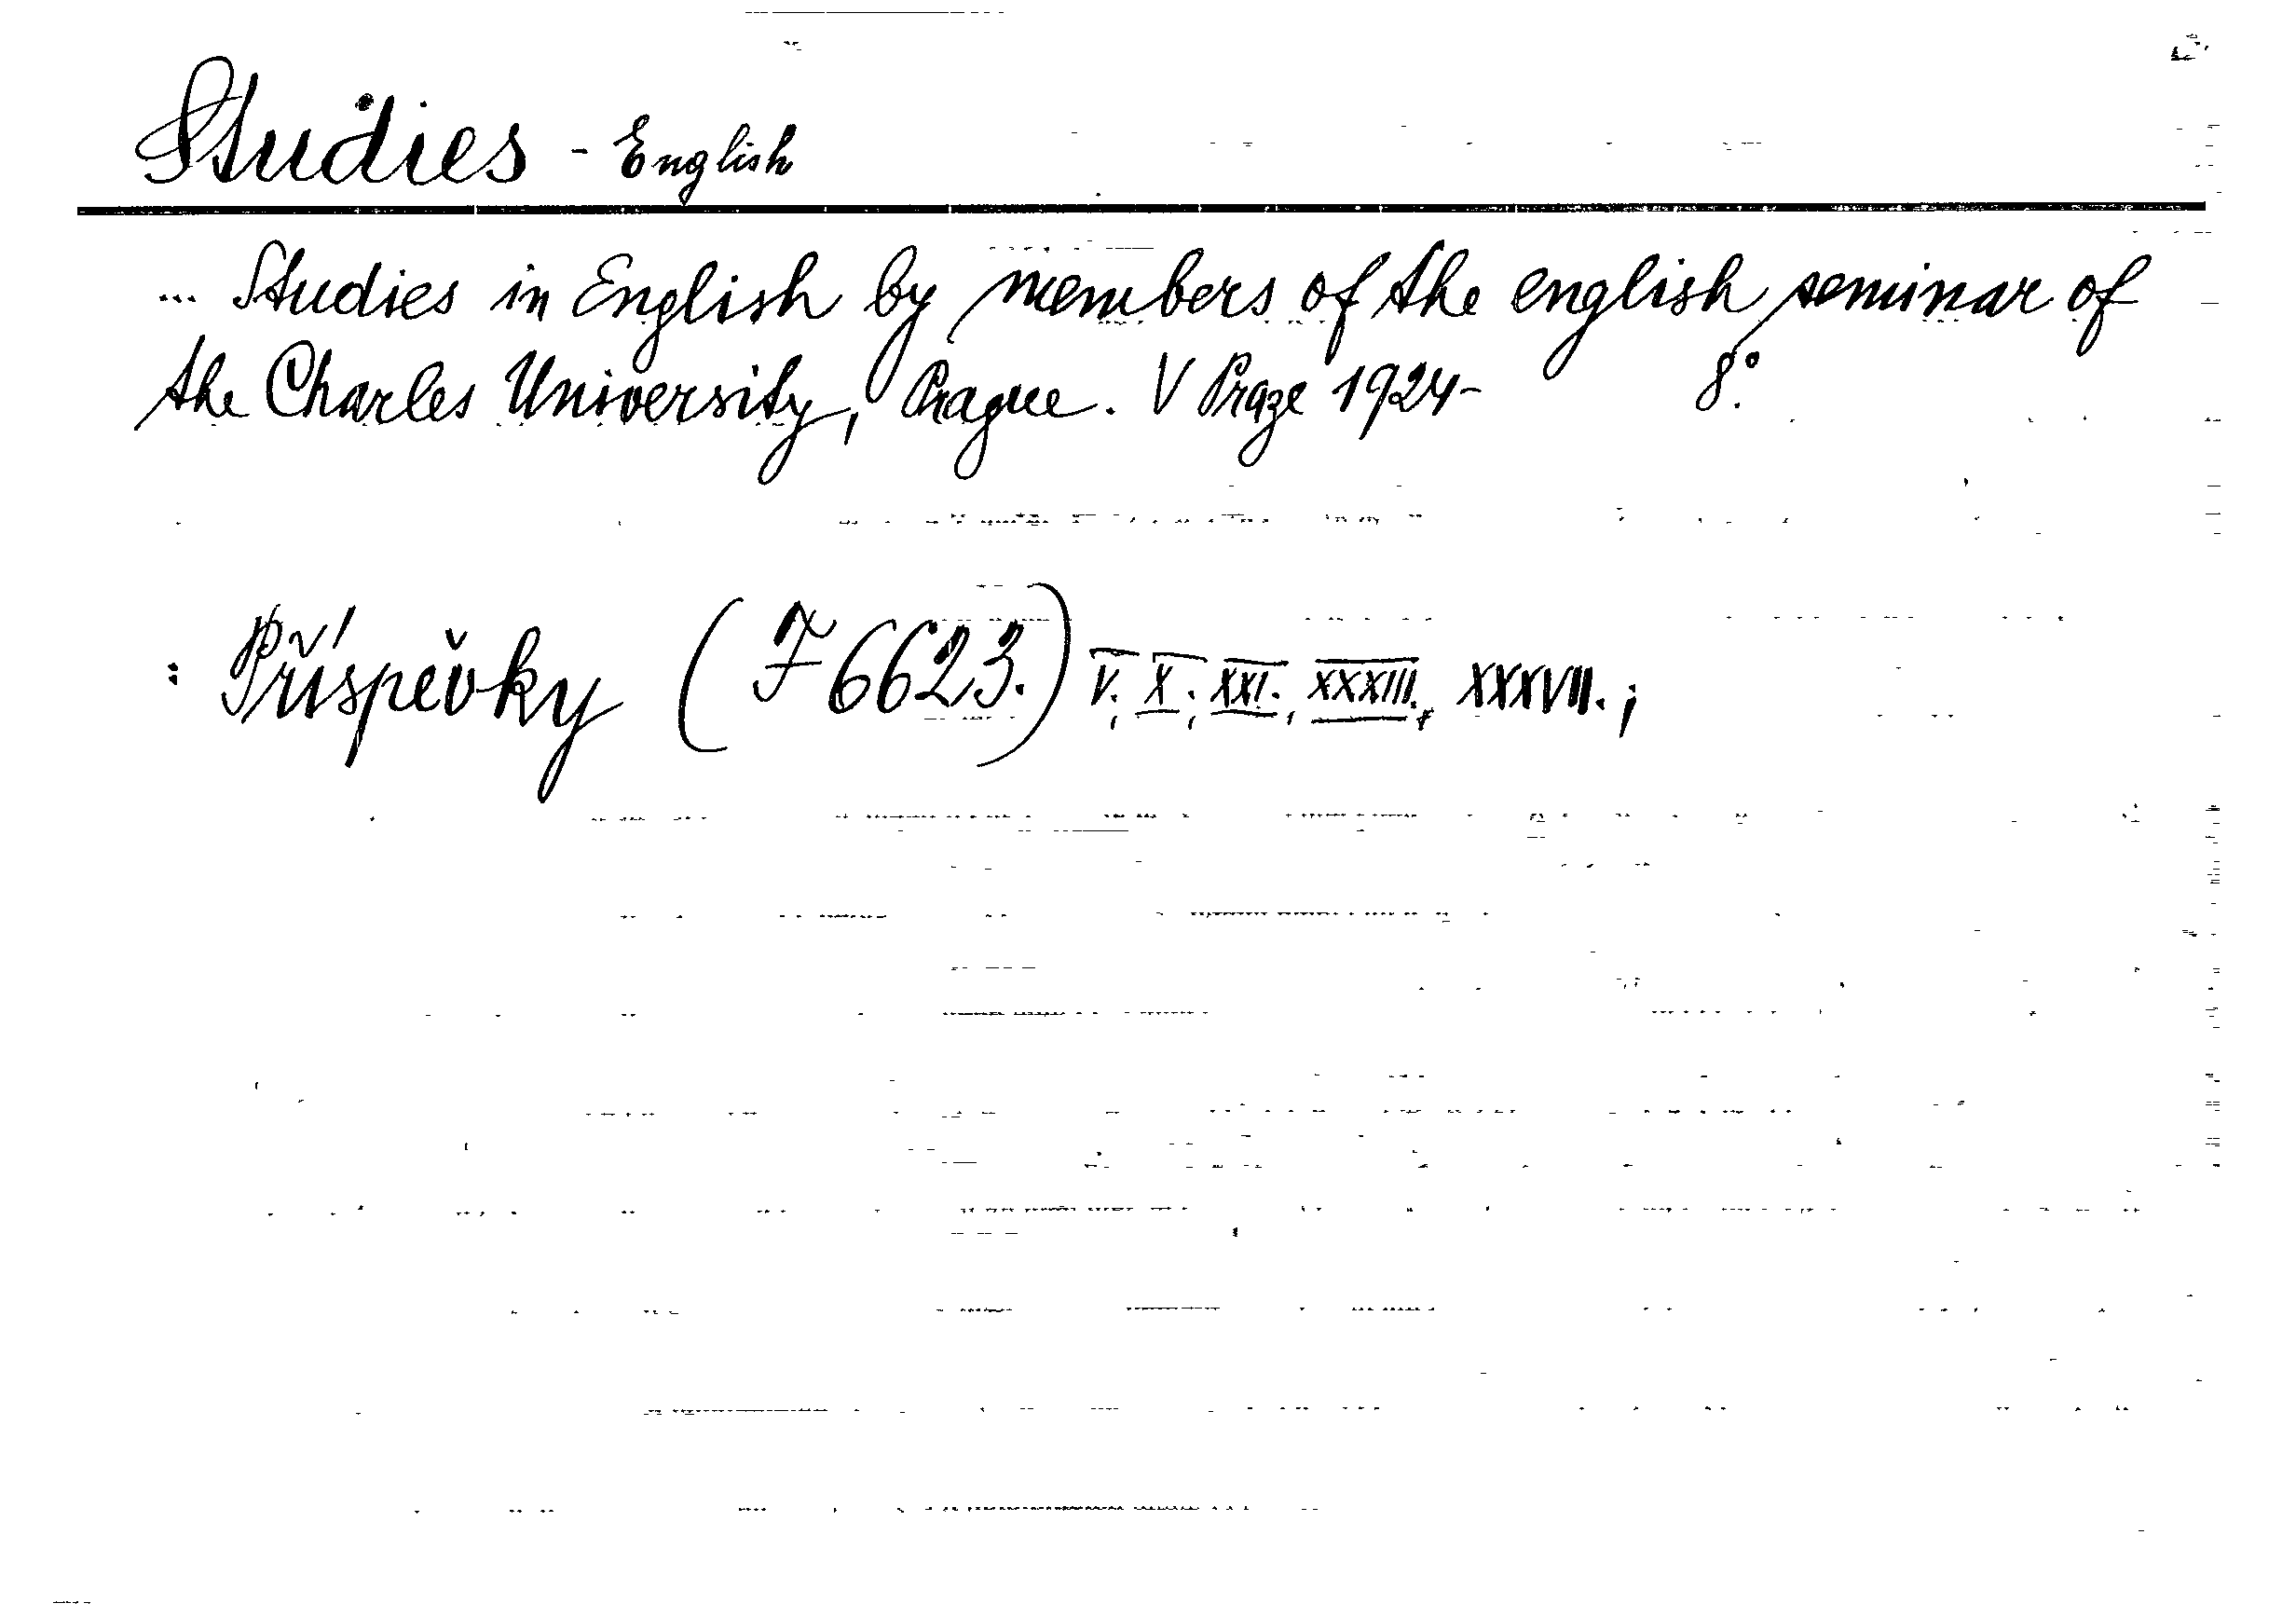 Studies - English
... Studies in English by members of the english seminar of
the Charles University, Prague. V Praze 1924- 8°.
: Příspěvky (F 6623.) V., X., XXI., XXXIII., XXXVII.;